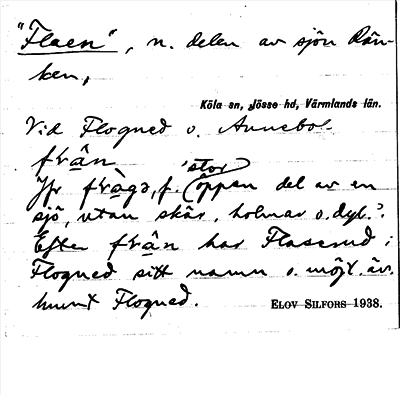 "Flaen", n. delen av sjön Rän-
ken,
Köla sn, Jösse hd, Värmlands län.
Vid Flogned o. Annebol.
från
Jfr frågə, f. 'stor
(öppen del av en
sjö, utan skär, holmar o. dyl.'.
Efter från har Flaserud i
Flogned sitt namn o. möjl. äv.
Flogned.
ELOV SILFORS 1938.